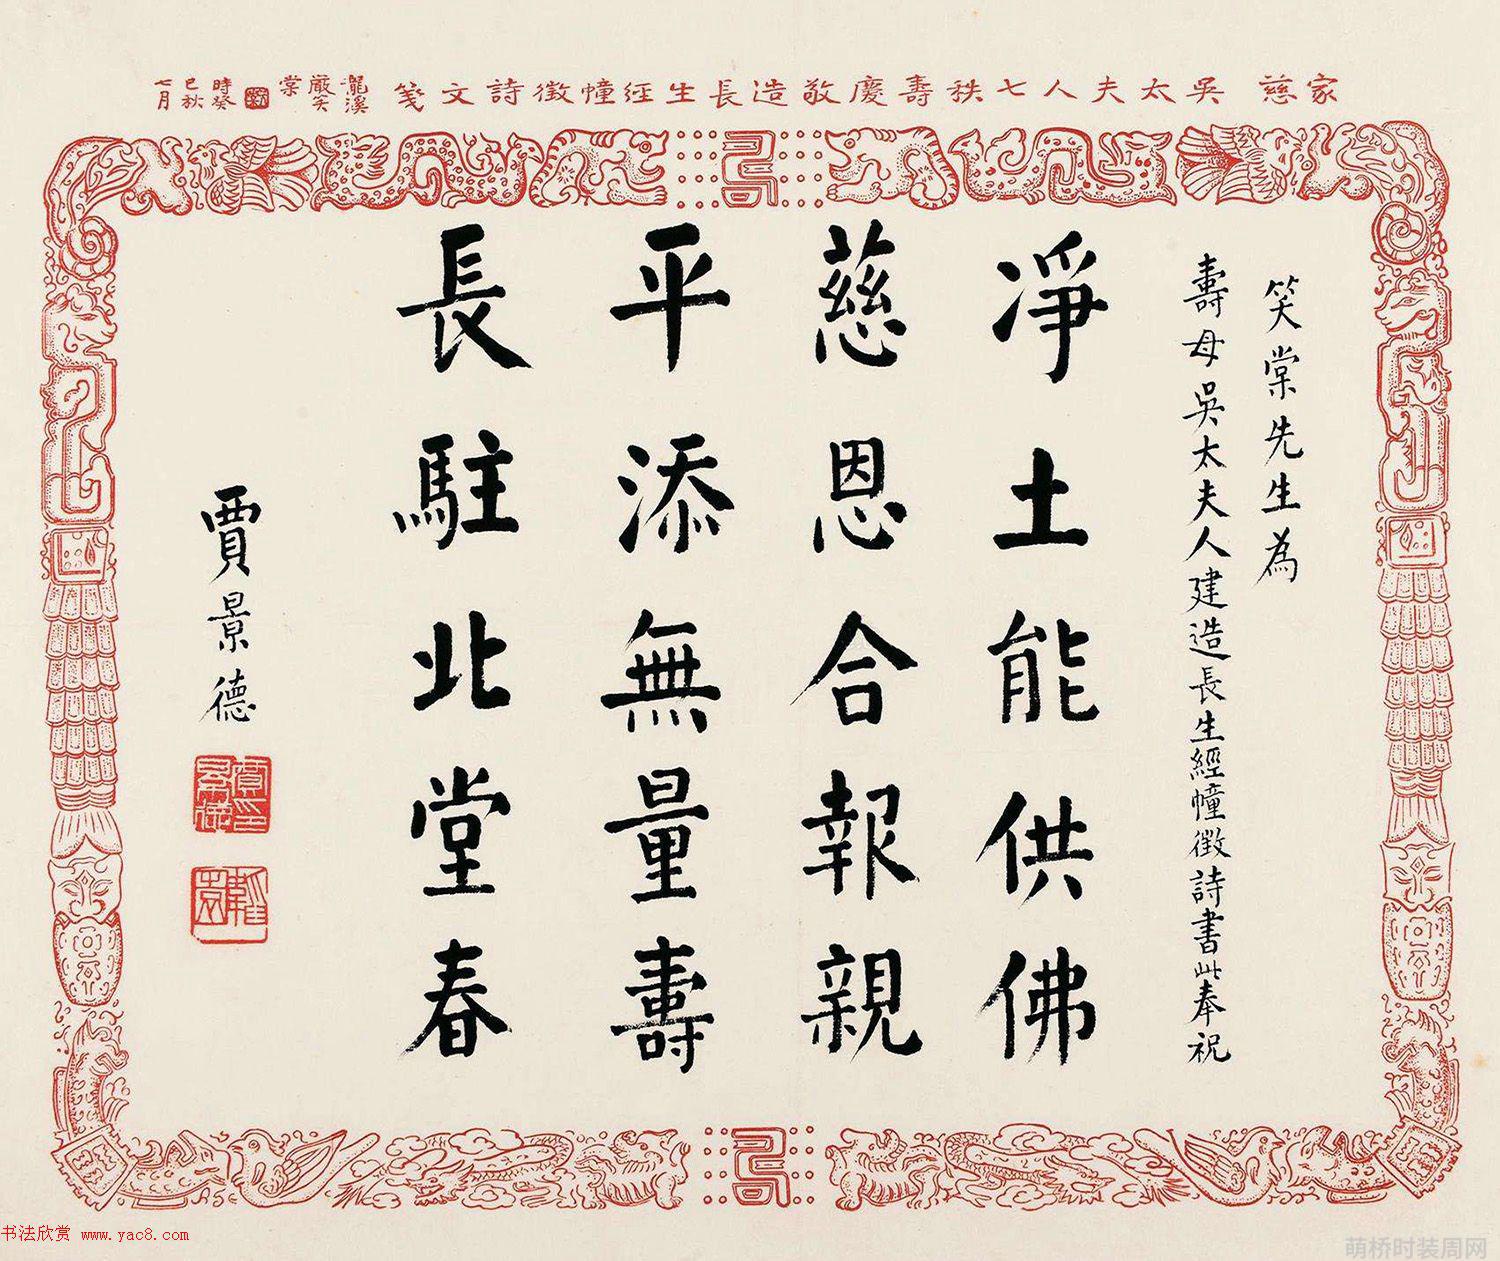 家慈 吳太夫人七秩壽慶敬造長生經幢徵詩文箋
瀧溪
嚴笑
棠
時癸
巳秋
七月
笑棠先生為
壽母吳太夫人建造長生經幢徵詩書此奉祝
凈土能供佛
慈恩合報親
平添無量壽
長駐北堂春
賈景德
賈景德印
韜園
书法欣赏 www.yac8.com
萌桥时装周网